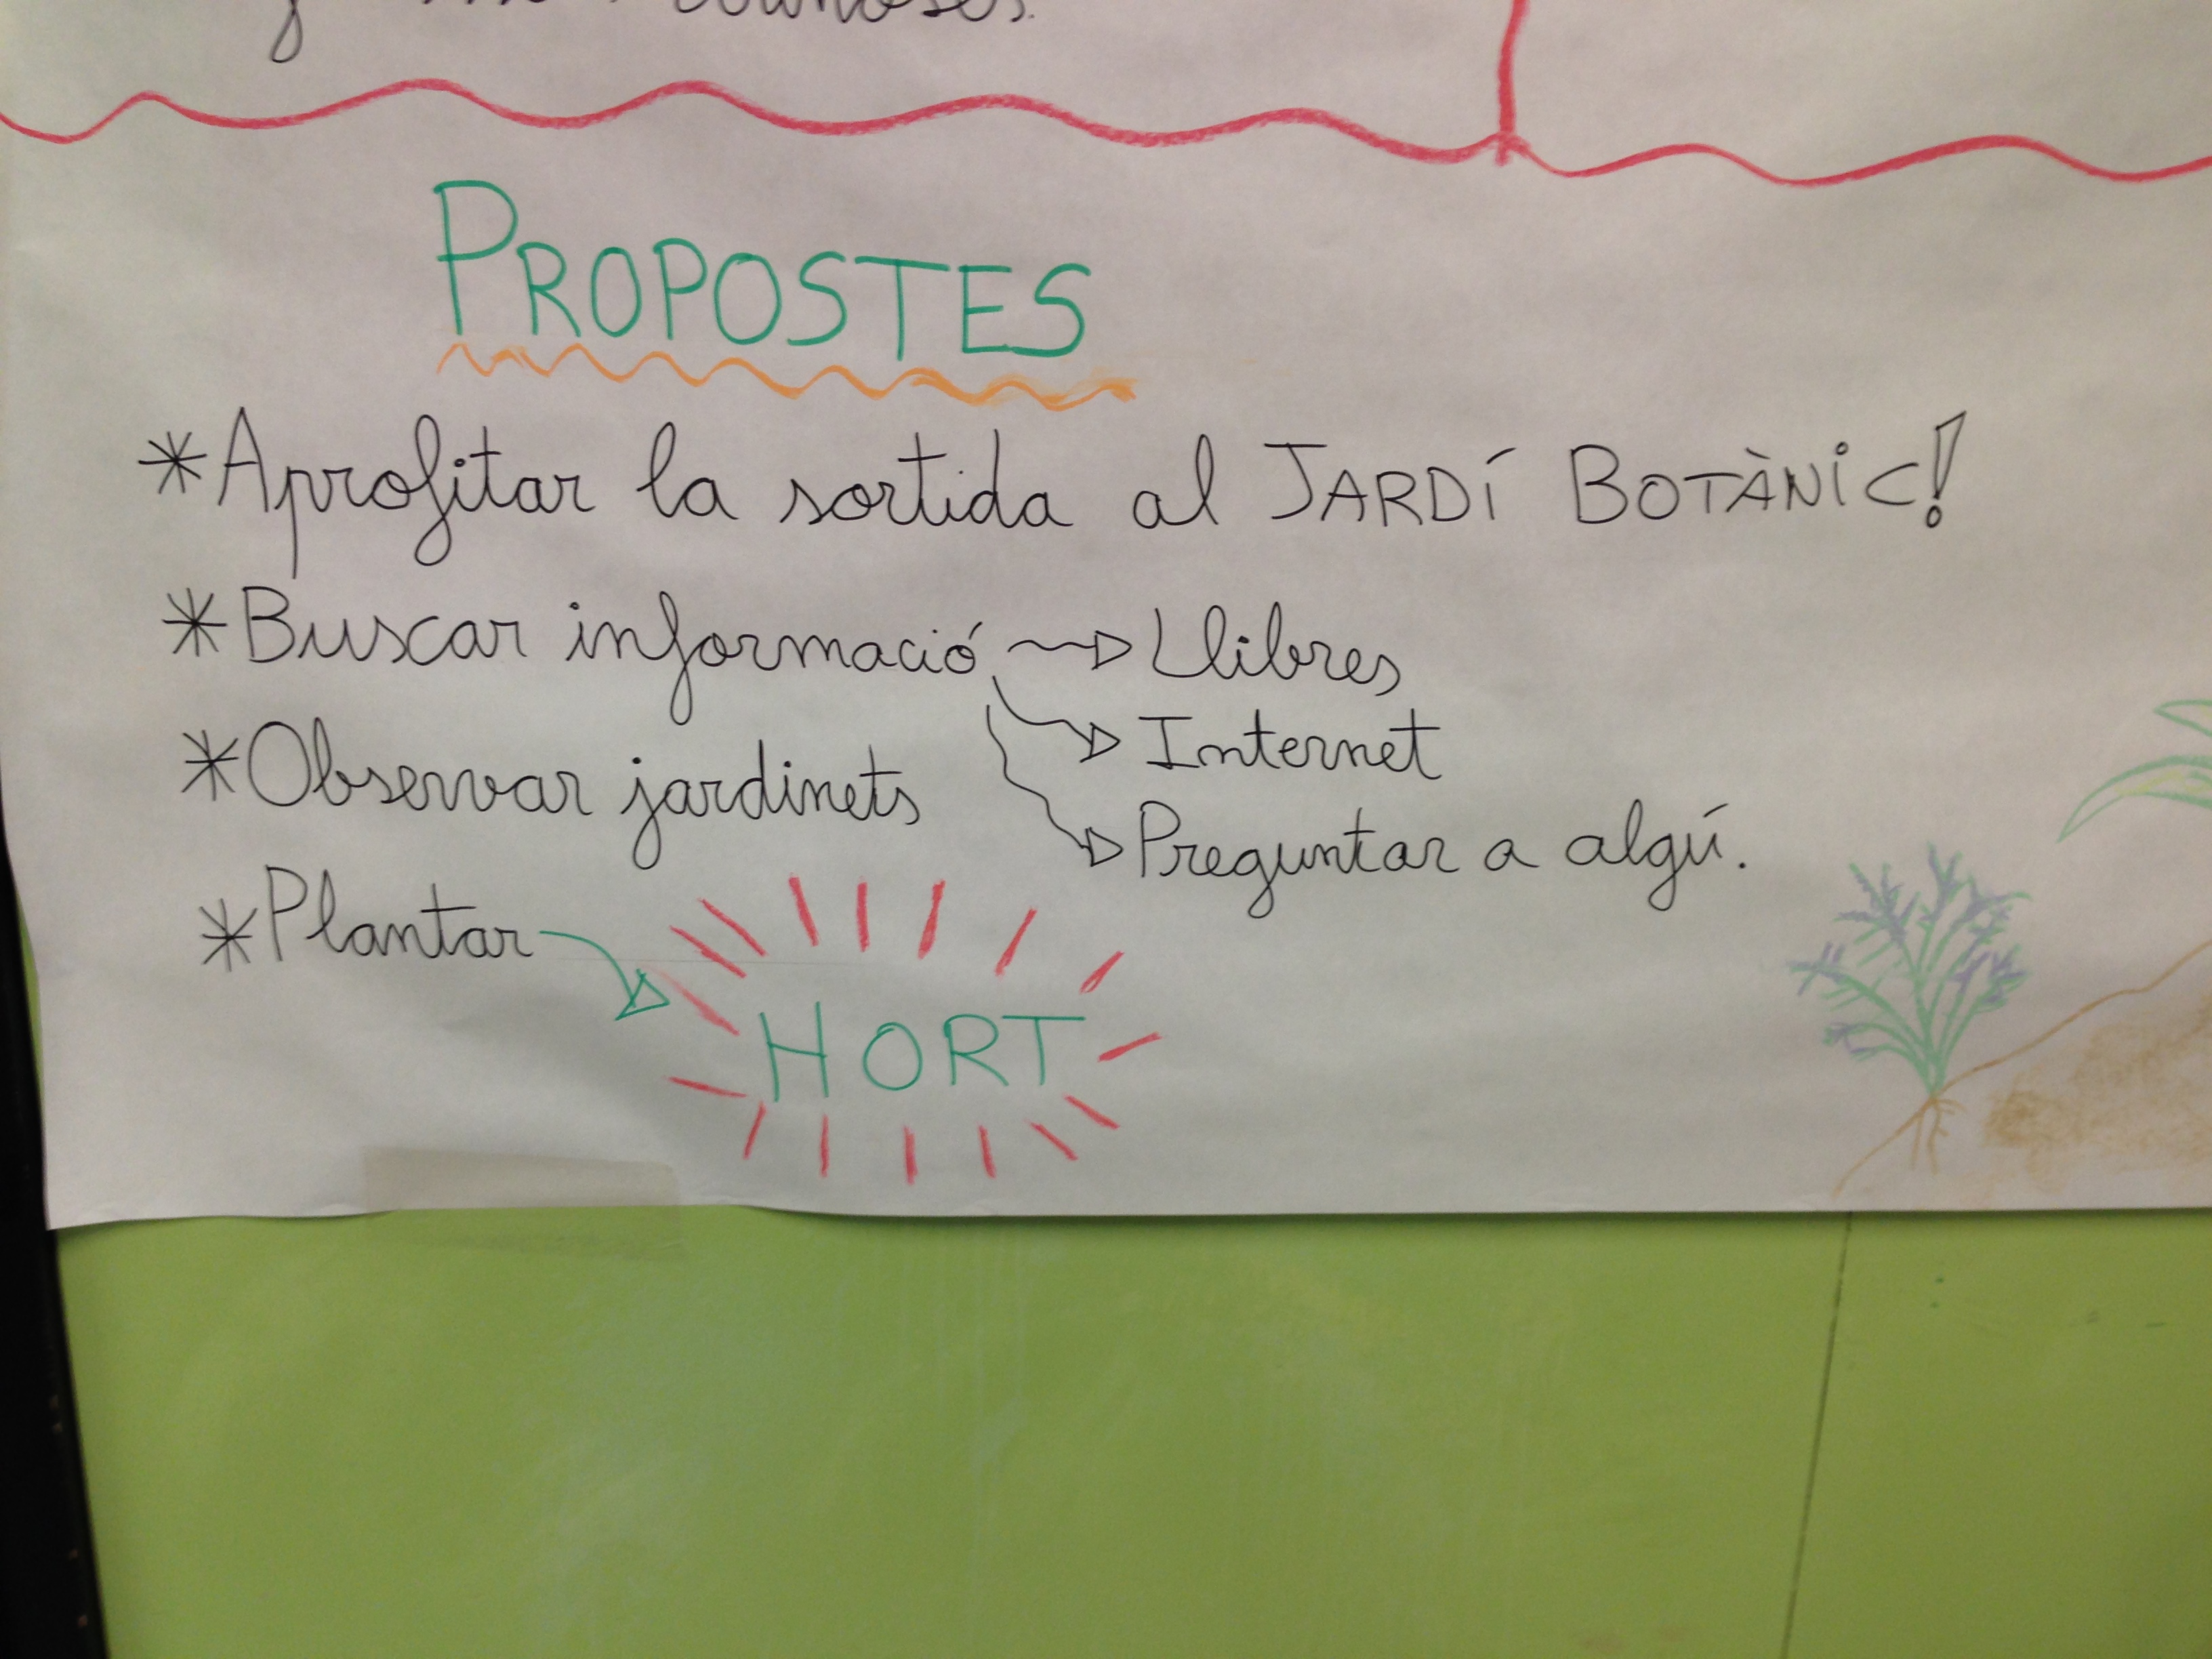 PROPOSTES
*Aprofitar la sortida al JARDÍ BOTÀNIC!
*Buscar informació → Llibres
→ Internet
*Observar jardinets
→ Preguntar a algú.
*Plantar
HORT